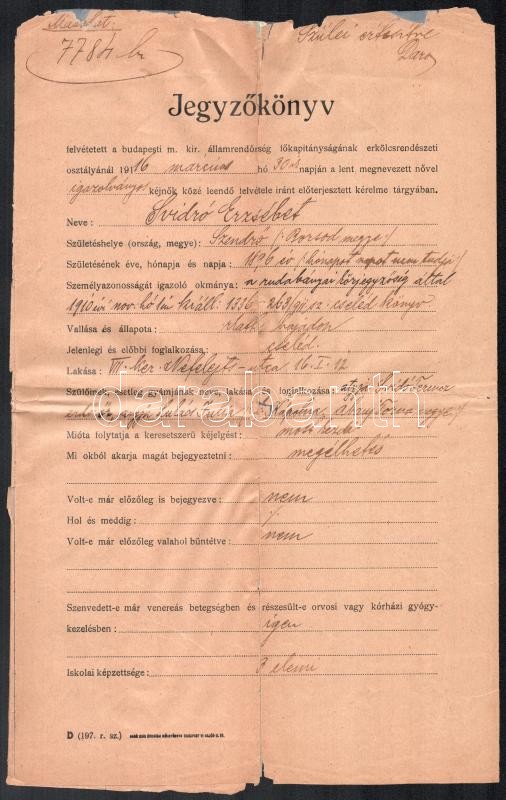 7784
Szülei értesítve
Jegyzőkönyv
felvétetett a budapesti m. kir. államrendőrség főkapitányságának erkölcsrendészeti
osztályánál 1916 március hó 30 napján a lent megnevezett nővel
igazolványos kéjnők közé leendő felvétele iránt előterjesztett kérelme tárgyában.
Neve: Svidró Erzsébet
Születéshelye (ország, megye): Szendrő (Borsod megye)
Születésének éve, hónapja és napja: 1896 év (hónapot napot nem tudja)
Személyazonosságát igazoló okmánya: a rudabányai körjegyzőség által
1910 évi nov. hó kiáll. 1336-263/gy. sz. cseléd könyv
Vallása és állapota: r. kath. hajadon
Jelenlegi és előbbi foglalkozása: cseléd.
Lakása: VII. ker. Nefelejts-utca 16. I. 12
Szülőinek esetleg gyámjának neve, lakása és foglalkozása: atyja
anyja
Mióta folytatja a keresetszerű kéjelgést: most kezdi
Mi okból akarja magát bejegyeztetni: megélhetés
Volt-e már előzőleg is bejegyezve: nem
Hol és meddig: /.
Volt-e már előzőleg valahol büntetve: nem
Szenvedett-e már venereás betegségben és részesült-e orvosi vagy kórházi gyógy-
kezelésben: igen
Iskolai képzettsége: 3 elemi
D (197. r. sz.)
darabanth